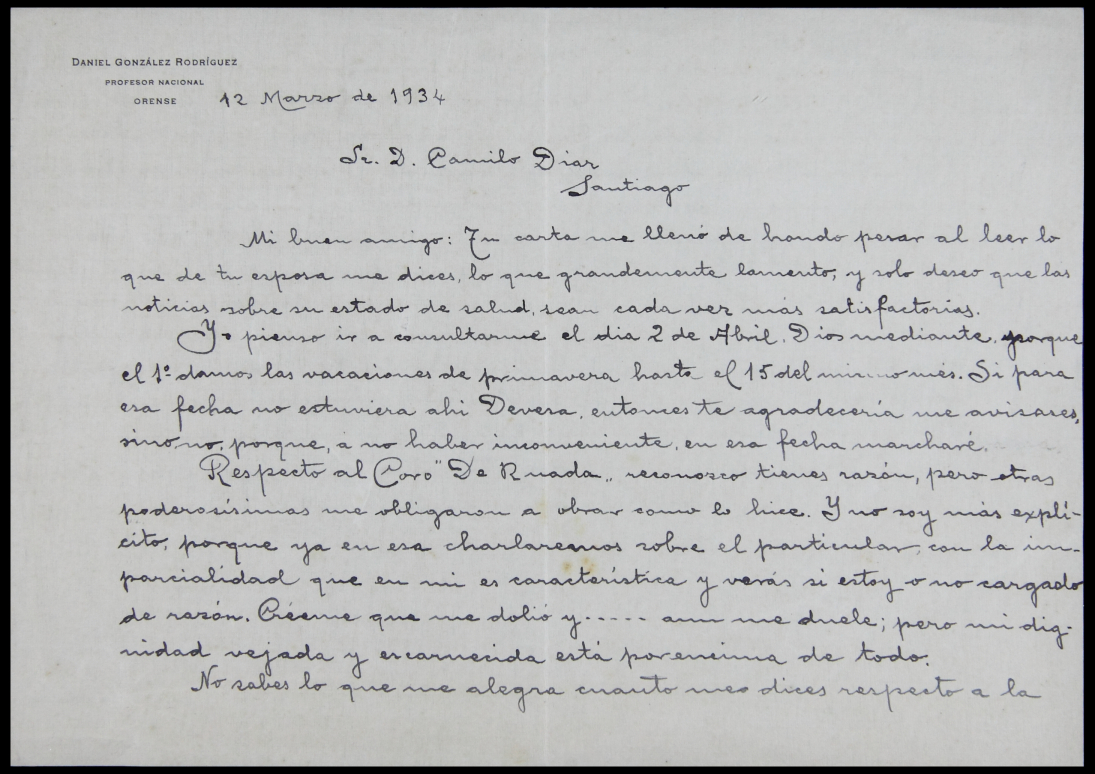 DANIEL GONZÁLEZ RODRÍGUEZ
PROFESOR NACIONAL
ORENSE
12 Marzo de 1934
Sr. D. Camilo Diaz
Santiago
Mi buen amigo: Tu carta me llenó de hondo pesar al leer lo
que de tu esposa me dices, lo que grandemente lamento, y solo deseo que las
noticias sobre su estado de salud, sean cada vez más satisfactorias.
Yo pienso ir a consultarme el dia 2 de Abril, Dios mediante, porque
el 1º damos las vacaciones de primavera hasta el 15 del mismo mes. Si para
esa fecha no estuviera ahi Devesa, entonces te agradecería me avisases,
sino no, porque, a no haber inconveniente, en esa fecha marcharé.
Respecto al Coro "De Ruada" reconozco tienes razón, pero otras
poderosísimas me obligaron a obrar como lo hice. Y no soy más explí-
cito, porque ya en esa charlaremos sobre el particular, con la im-
parcialidad que en mi es característica y verás si estoy o no cargado
de razón. Créeme que me dolió y..... aun me duele; pero mi dig-
nidad vejada y escarnecida está por encima de todo.
No sabes lo que me alegra cuanto me dices respecto a la